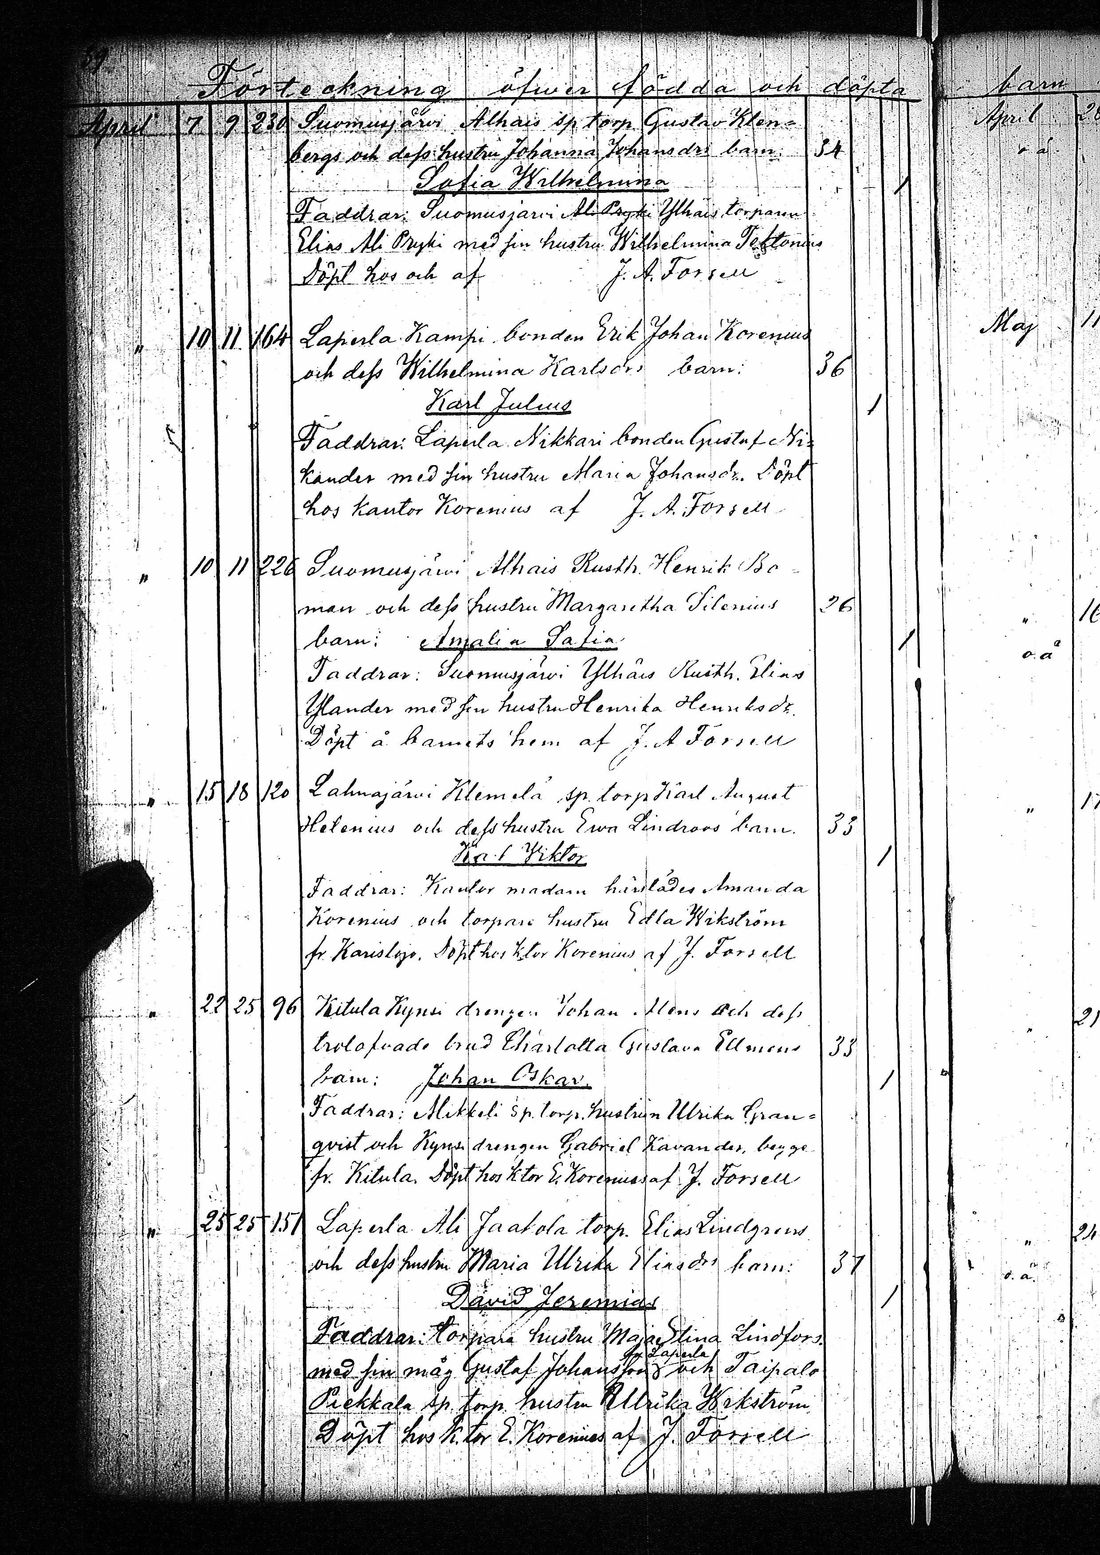 Förteckning öfwer födda och döpta barn
April 7 9 230 Suomusjärvi Alhais sp torp Gustav Klen=
bergs och dess hustru Johanna Johansdrs barn: 34
Sofia Wilhelmina 1
Faddrar: Suomusjärvi Ali Pryki Ylhäis torparen
Elias Ali Pryki med sin hustru Wilhelmina
Döpt hos och af J. A. Forsell
" 10 11 164 Laperla Kampi bonden Erik Johan Korenius
och dess Wilhelmina Karlsdrs barn: 36
Karl Julius 1
Faddrar: Laperla Nikkari bonden Gustaf Ni=
kander med sin hustru Maria Johansdr. Döpt
hos Kantor Korenius af J. A. Forsell
" 10 11 226 Suomusjärvi Alhais Rusth. Henrik Bo=
man och dess hustru Margaretha Silenius 26
barn: Amalia Sofia 1
Faddrar: Suomusjärvi Ylhäis Rusth. Elias
Ylander med sin hustru Henrika Henriksdr.
Döpt å barnets hem af J. A Forsell
" 15 18 120 Lahnajärvi Klemelä sp. torp Karl August
Helenius och dess hustru Ewa Lindroos barn. 33
Karl Viktor 1
Faddrar: Kantor madam Amanda
Korenius och torpare hustru Edla Wikström
fr. Karislojo. Döpt hos Ktor Korenius af J. Forsell
" 22 25 96 Kitula Kynsi drengen Johan Alens och dess
trolofvade brud Charlotta Gustava Ellmens 33
barn: Johan Oskar. 1
Faddrar: Mikkeli sp. torp. hustrun Ulrika Gran=
qvist och Kynsi drengen Gabriel Kavander, begge
fr. Kitula. Döpt hos Ktor E. Korenius af J. Forsell
" 25 25 151 Laperla Ali Jaakola torp. Elias Lindgrens
och dess hustru Maria Ulrika Eliasdrs barn: 37
David Jeremias 1
Faddrar: torpare hustru Maja Stina Lindfors
fr Laperla
med sin måg Gustaf Johansson och Taipale
Piekkala sp. torp. hustru Ulrika Wikström
Döpt hos Ktor E. Korenius af J. Forsell
April
o å
Maj 11
" 16
o. å
" 17
" 21
" 24
o. å